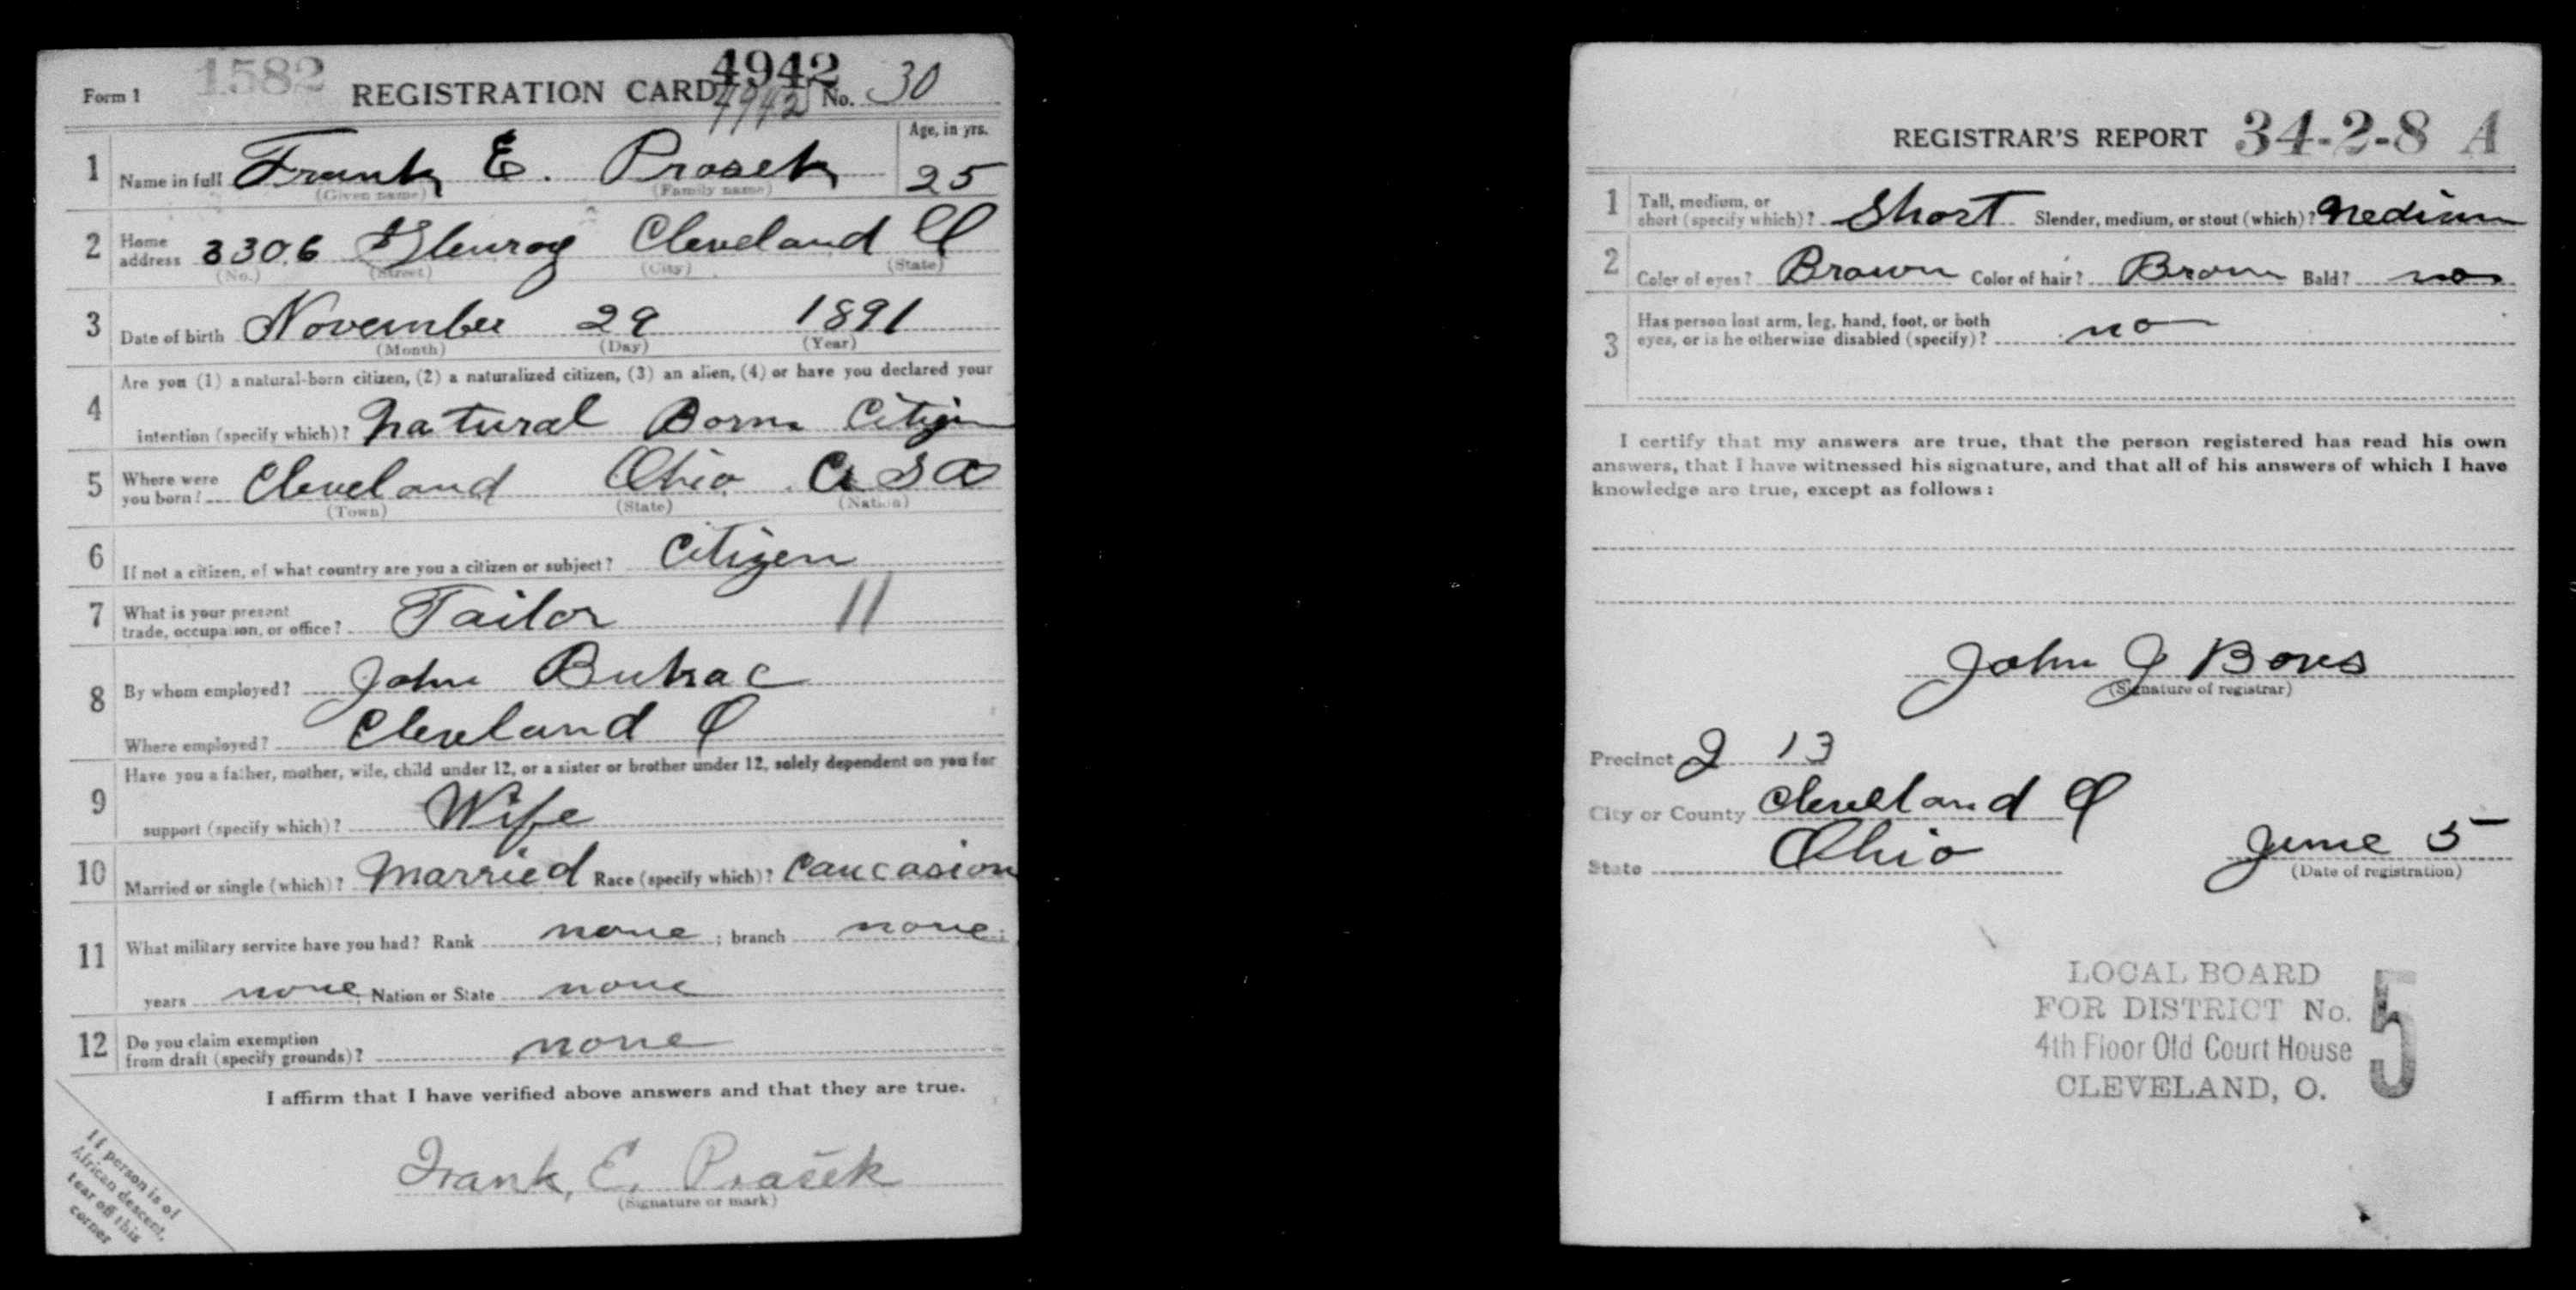 1582 4942
Form 1 REGISTRATION CARD 4942 No. 30
1 Name in full Frank E. Prosek Age, in yrs. 25
(Given name) (Family name)
2 Home address 3306 Glenroy Cleveland O
(No.) (Street) (City) (State)
3 Date of birth November 29 1891
(Month) (Day) (Year)
4 Are you (1) a natural-born citizen, (2) a naturalized citizen, (3) an alien, (4) or have you declared your
intention (specify which)? Natural Born Citizen
5 Where were you born? Cleveland Ohio U S A
(Town) (State) (Nation)
6 If not a citizen, of what country are you a citizen or subject? Citizen
7 What is your present trade, occupation, or office? Tailor 11
8 By whom employed? John Bukac
Where employed? Cleveland O
9 Have you a father, mother, wife, child under 12, or a sister or brother under 12, solely dependent on you for
support (specify which)? Wife
10 Married or single (which)? Married Race (specify which)? Caucasion
11 What military service have you had? Rank none ; branch none ;
years none Nation or State none
12 Do you claim exemption from draft (specify grounds)? none
I affirm that I have verified above answers and that they are true.
Frank, E. Prašek
(Signature or mark)
If person is of
African descent,
tear off this
corner
REGISTRAR'S REPORT 34-2-8 A
1 Tall, medium, or short (specify which)? Short Slender, medium, or stout (which)? Medium
2 Color of eyes? Brown Color of hair? Brown Bald? no
3 Has person lost arm, leg, hand, foot, or both
eyes, or is he otherwise disabled (specify)? no
I certify that my answers are true, that the person registered has read his own
answers, that I have witnessed his signature, and that all of his answers of which I have
knowledge are true, except as follows:
John J
(Signature of registrar)
Precinct 2 13
City or County Cleveland O
State Ohio June 5
(Date of registration)
LOCAL BOARD
FOR DISTRICT No. 5
4th Floor Old Court House
CLEVELAND, O.